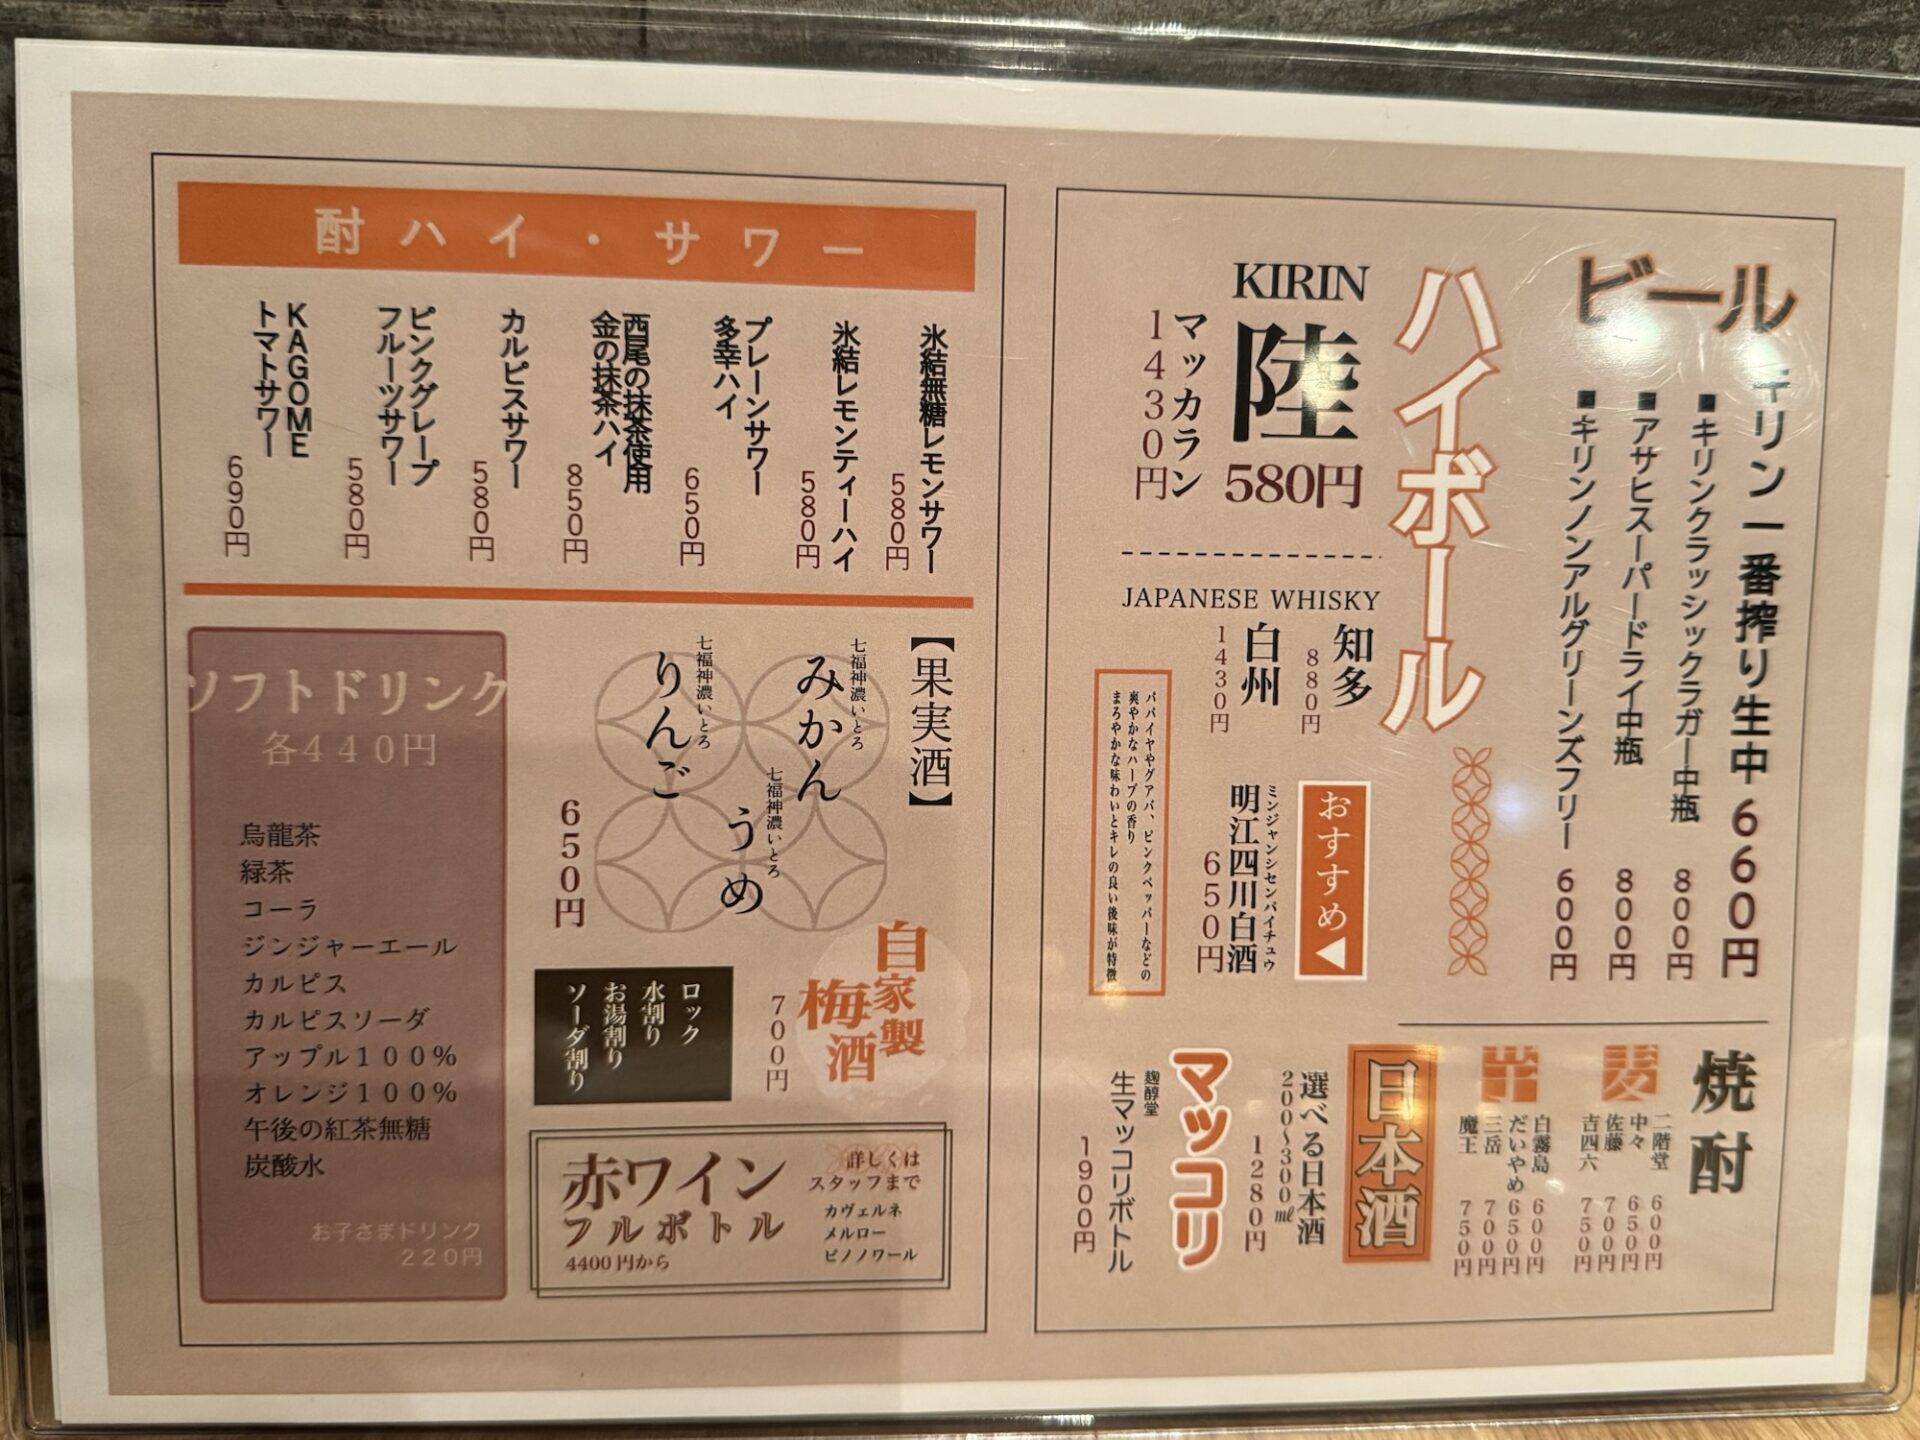 ビール
キリン一番搾り生中 660円
■キリンクラッシックラガー中瓶 800円
■アサヒスーパードライ中瓶 800円
■キリンノンアルグリーンズフリー 600円
ハイボール
KIRIN
陸
580円
マッカラン
1430円
JAPANESE WHISKY
知多
880円
白州
1430円
おすすめ◀
ミンジャンシセンバイチュウ
明江四川白酒
650円
パパイヤやグアバ、ピンクペッパーなどの
爽やかなハーブの香り
まろやかな味わいとキレの良い後味が特徴
焼酎
麦
二階堂 600円
中々 650円
佐藤 700円
吉四六 750円
芋
白霧島 600円
だいやめ 650円
三岳 700円
魔王 750円
日本酒
選べる日本酒
200~300㎖
1280円
マッコリ
麹醇堂
生マッコリボトル
1900円
酎ハイ・サワー
氷結無糖レモンサワー
580円
氷結レモンティーハイ
580円
プレーンサワー
多幸ハイ
650円
西尾の抹茶使用
金の抹茶ハイ
850円
カルピスサワー
580円
ピンクグレープ
フルーツサワー
580円
KAGOME
トマトサワー
690円
【果実酒】
七福神濃いとろ
みかん
七福神濃いとろ
りんご
七福神濃いとろ
うめ
650円
自家製
梅酒
700円
ロック
水割り
お湯割り
ソーダ割り
赤ワイン
フルボトル
4400円から
詳しくは
スタッフまで
カヴェルネ
メルロー
ピノノワール
ソフトドリンク
各440円
烏龍茶
緑茶
コーラ
ジンジャーエール
カルピス
カルピスソーダ
アップル100%
オレンジ100%
午後の紅茶無糖
炭酸水
お子さまドリンク
220円